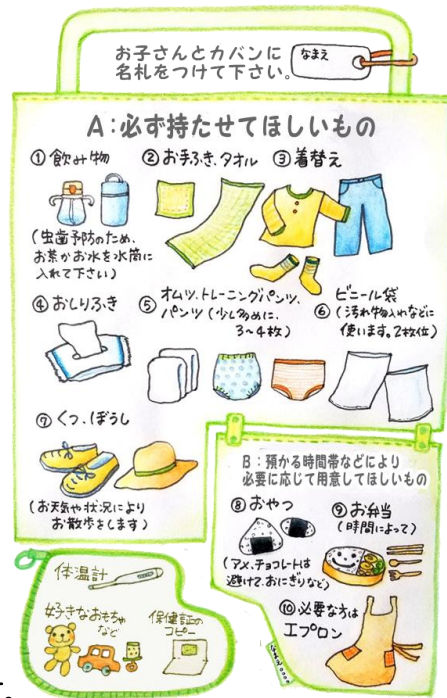 お子さんとカバンに
名札をつけて下さい。
なまえ
A:必ず持たせてほしいもの
① 飲み物
② お手ふき、タオル
③ 着替え
(虫歯予防のため、
お茶かお水を水筒に
入れて下さい)
④ おしりふき
⑤ オムツ、トレーニングパンツ、
パンツ(少し多めに、
3~4枚)
⑥ ビニール袋
(汚れ物入れなどに
使います。2枚位)
⑦ くつ、ぼうし
(お天気や状況により
お散歩をします)
B:預かる時間帯などにより
必要に応じて用意してほしいもの
⑧ おやつ
(アメ、チョコレートは
避けて、おにぎりなど)
⑨ お弁当
(時間によって)
⑩ 必要な方は
エプロン
体温計
好きなおもちゃ
など
保健証の
コピー